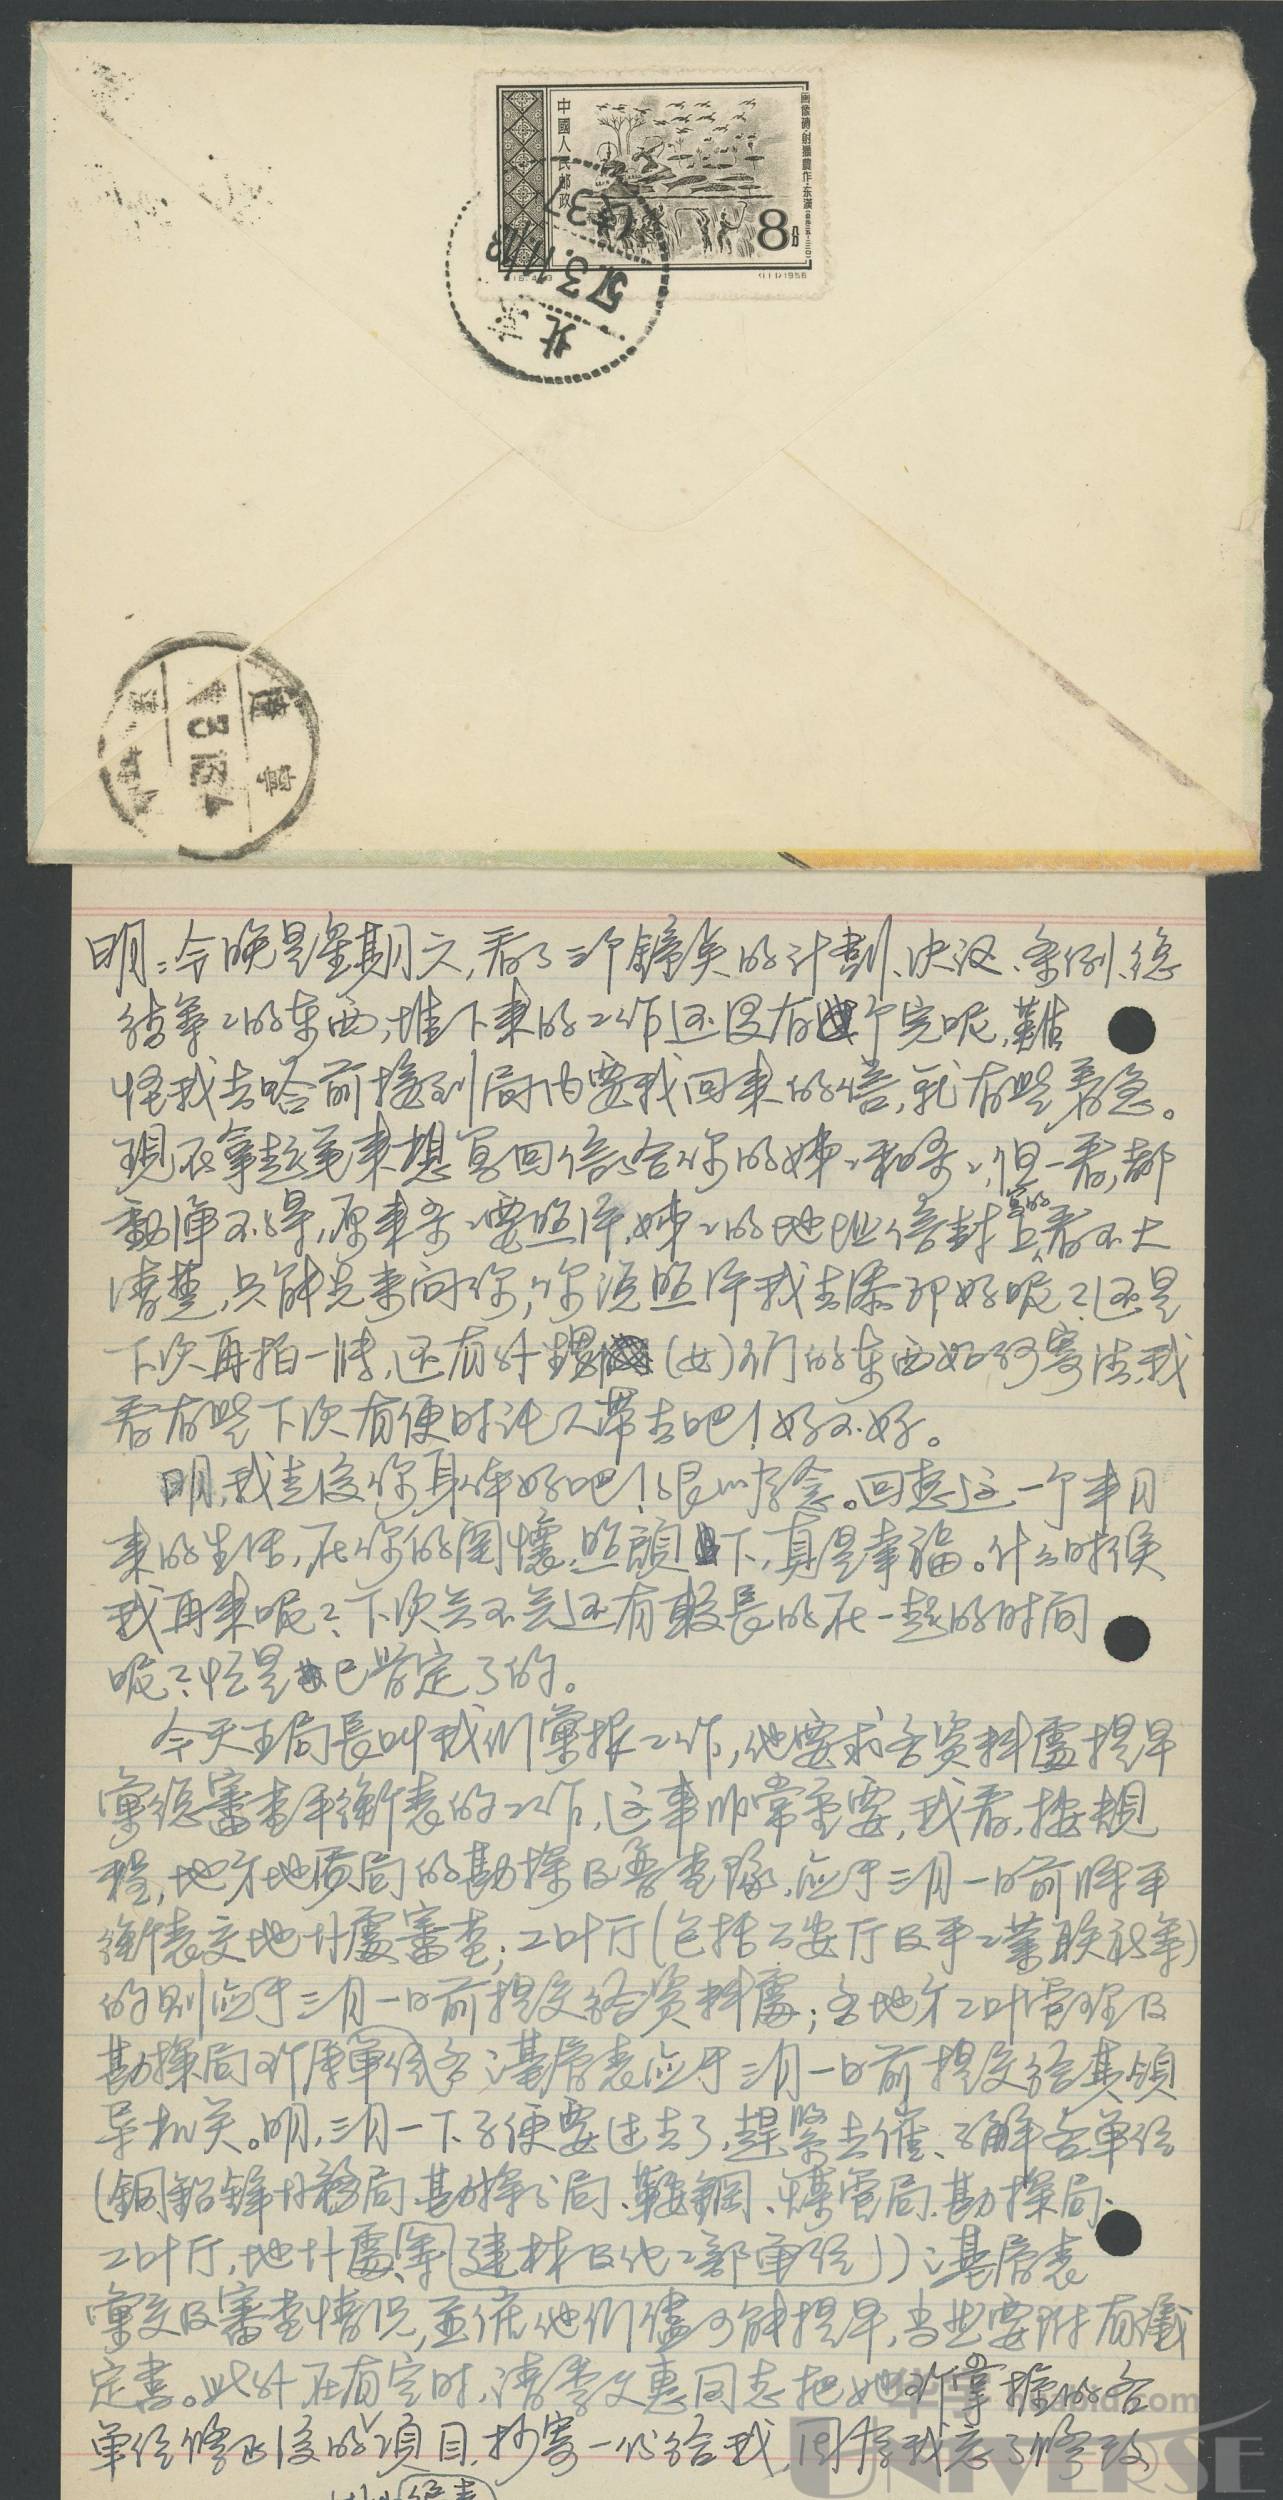 中國人民邮政
画像磚·射獵農作·东漢
8分
1956
北京
57.3.17.18
遼寧
明：今晚是星期六，看了三个鐘头的计劃、决议、条例、总
结等等的东西，堆下来的工作还没有看个完呢，難
怪我去哈前接到局内要我回来的信，就有些着急。
現在拿起笔来想写回信给你的姊姊和爷爷，但一看，都
動彈不得，原来爷爷要照片，姊姊的地址信封上写的看不大
清楚，只能先来问你，你说照片我去添印好呢？还是
下次再拍一张，还有外甥(女)们的东西如何寄法，我
看有些下次有便时讬人带去吧！好不好。
明，我走後你身体好吧！很以为念。回想这一个来月
来的生活，在你的関懷、照顧下，真是幸福。什么时候
我再来呢？下次会不会还有較長的在一起的时间
呢？恒是已肯定了的。
今天王局長叫我们彙报工作，他要求各资料處提早
彙总審查平衡表的工作，这事非常重要，我看，按規
程，地方地质局的勘探及普查隊，应于三月一日前将平
衡表交地廾處審查；工叶厅(包括公安厅及手工業联社等)
的则应于三月一日前提交給资料處；各地方工叶管理及
勘探局所属單位各之基層表应于三月一日前提交给其領
导机关。明，三月一下子便要过去了，趕緊去催、了解各單位
(銅鉛鋅廾務局、勘探公司、鞍鋼、煤管局、勘探局、
工叶厅，地廾處等(建材及化工部單位))之基層表
彙交及審查情况，並催他们儘可能提早，当些要附有議
定書。此外在有空时，请李文惠同志把她所掌握的各
單位修正後的項目，抄寄一份给我，因为我忘了修改